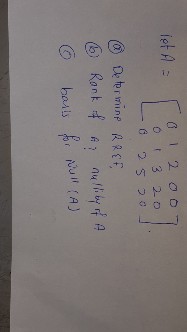 let A =
[ 0 1 2 0 0
0 1 3 2 0
0 2 5 2 0 ].
(a) Determine RREF
(b) Rank of A? nullity of A
(c) basis for Null(A)